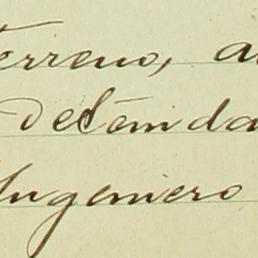 terreno, a
detenida
Ingeniero